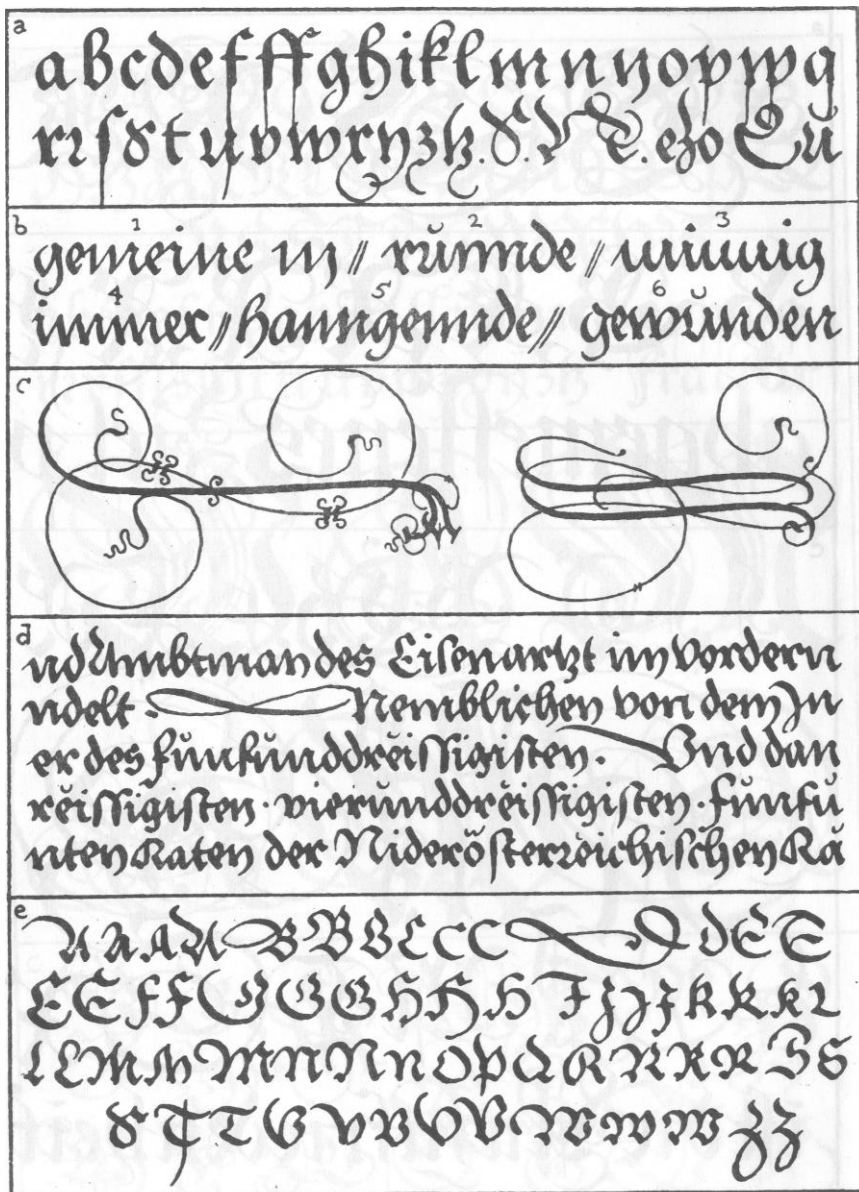 a
a b c d e f ff g h i k l m n y o p w q
r ı ſ s t u v w x y z tz . S . V T . ezo Q u
b 1 2 3
gemeine m // rŭnnde // miuuig
4 5 6
immer // hanngennde // gewŭnden
c
d
nd Ambtman des Eiſenartzt im Vordern
ndelt . Nemblichen von dem In
er des fŭnfŭnddreiſſigiſten . Vnd dan
reiſſigiſten · vierŭnddreiſſigiſten · fŭnfŭ
nten Raten der Nideröſterreichiſchen Ra
e
A A A A B B B C C C D D E E
E E F F G G G G H H H I J J J K K K L
L L M M M N N N n O P Q R R R R S S
S T T V V V V V W W W Z Z